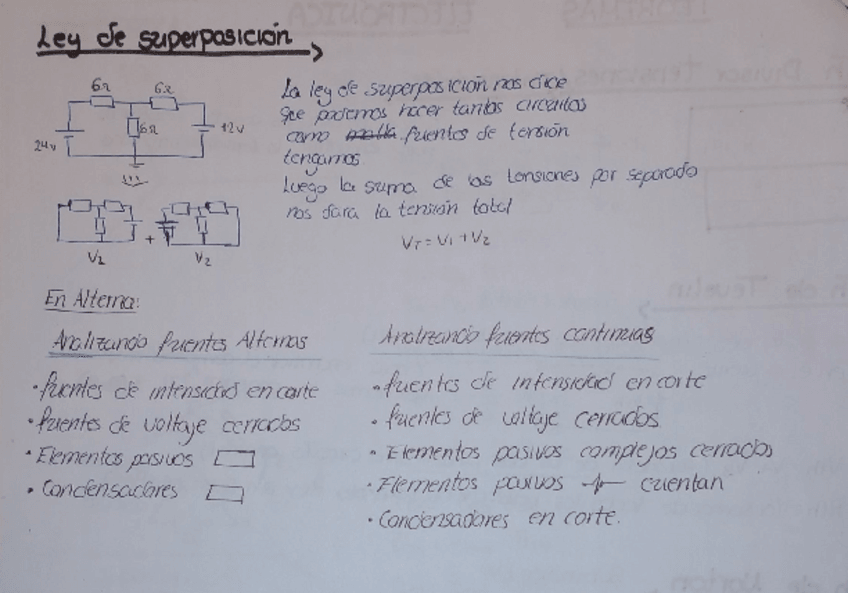 Ley de superposición
6Ω 6Ω
6Ω
24v 12v
La ley de superposición nos dice
que podemos hacer tantos circuitos
como fuentes de tensión
tengamos
Luego la suma de las tensiones por separado
nos dara la tensión total
+
V1 V2
VT = V1 + V2
En Alterna:
Analizando fuentes Alternas
· fuentes de intensidad en corte
· fuentes de voltaje cerrados
· Elementos pasivos
· Condensadores
Analizando fuentes continuas
· fuentes de intensidad en corte
· fuentes de voltaje cerrados
· Elementos pasivos complejos cerrados
· Elementos pasivos cuentan
· Condensadores en corte.